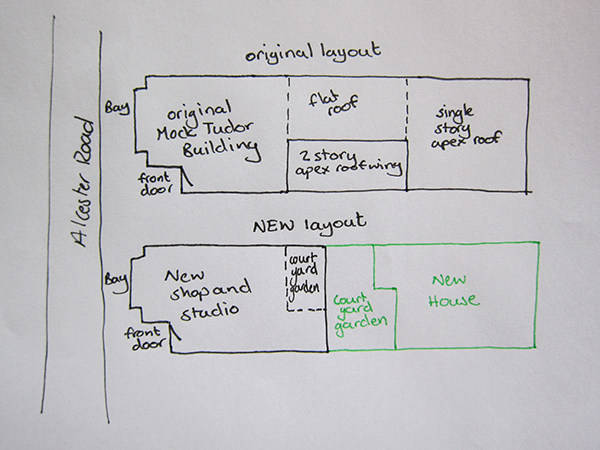 original layout
Alcester Road
Bay
original
Mock Tudor
Building
front
door
flat
roof
2 story
apex roof wing
single
story
apex roof
NEW layout
Bay
New
shop and
studio
front
door
court
yard
garden
court
yard
garden
New
House